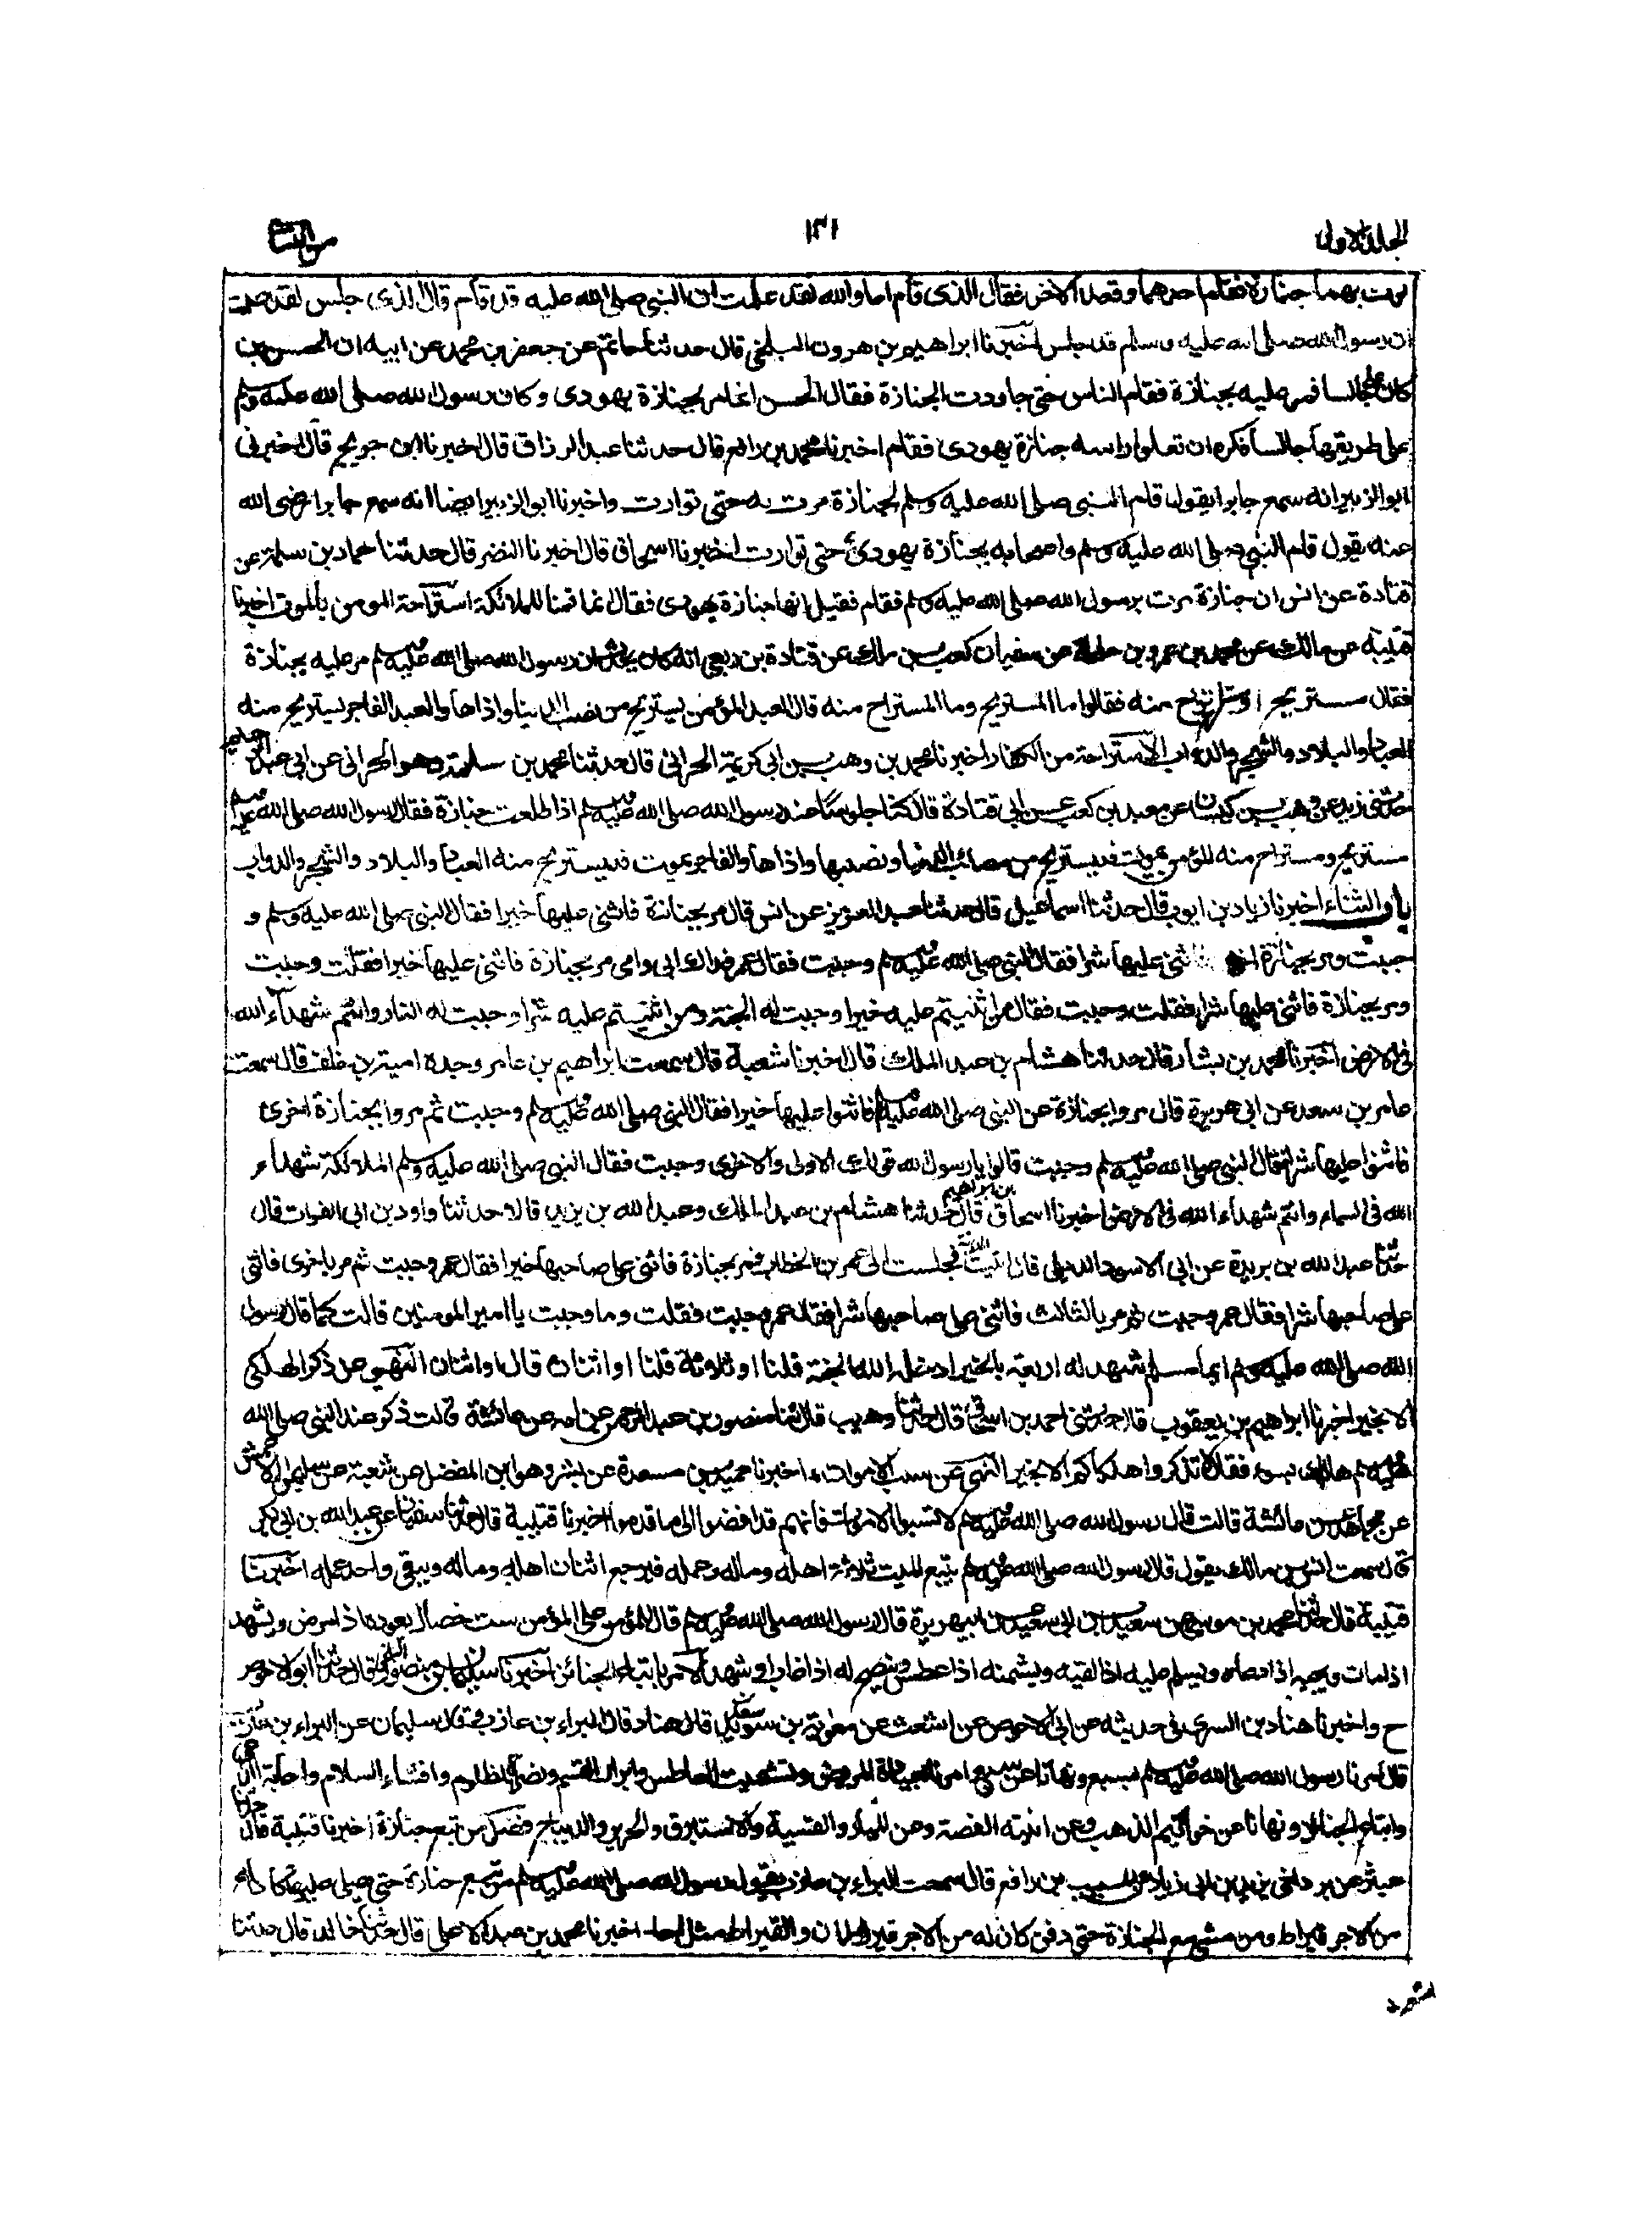 الجلد الاول
١٣١
من النسائى
مرت بهما جنازة فقام احدهما وقعد الاخر فقال الذى قام اما والله لقد علمت ان النبى صلى الله عليه قد قام قال الذى جلس لقد علمت
ان رسول الله صلى الله عليه وسلم قد جلس اخبرنا ابراهيم بن هرون البلخى قال حدثنا حاتم عن جعفر بن محمد عن ابيه ان الحسن بن
على كان جالسا فمر عليه بجنازة فقام الناس حتى جاوزت الجنازة فقال الحسن انما مر بجنازة يهودى وكان رسول الله صلى الله عليه وسلم
على طريقها جالسا فكره ان تعلو راسه جنازة يهودى فقام اخبرنا محمد بن رافع قال حدثنا عبد الرزاق قال اخبرنا ابن جريج قال اخبرنى
ابو الزبير انه سمع جابرا يقول قام النبى صلى الله عليه وسلم لجنازة مرت به حتى توارت واخبرنا ابو الزبير ايضا انه سمع جابرا رضى الله
عنه يقول قام النبى صلى الله عليه وسلم واصحابه بجنازة يهودى حتى توارت اخبرنا اسحاق قال اخبرنا النضر قال حدثنا حماد بن سلمة عن
قتادة عن انس ان جنازة مرت برسول الله صلى الله عليه وسلم فقام فقيل انها جنازة يهودى فقال انما قمنا للملائكة استراحة المومن بالموت اخبرنا
قتيبة عن مالك عن محمد بن عمرو بن حلحلة عن معبد بن كعب بن مالك عن قتادة بن ربعى انه كان يحدث ان رسول الله صلى الله عليه وسلم مر عليه بجنازة
فقال مستريح او مستراح منه فقالوا ما المستريح وما المستراح منه قال العبد المؤمن يستريح من نصب الدنيا واذاها والعبد الفاجر يستريح منه
العباد والبلاد والشجر والدواب الاستراحة من الكفار اخبرنا محمد بن وهب بن ابى كريمة الحرانى قال حدثنا محمد بن سلمة وهو الحرانى عن ابى عبد الرحيم
حدثنى زيد عن وهب بن كيسان عن معبد بن كعب عن ابى قتادة قال كنا جلوسا عند رسول الله صلى الله عليه وسلم اذا طلعت جنازة فقال رسول الله صلى الله عليه وسلم
مستريح ومستراح منه المؤمن يموت فيستريح من مصائب الدنيا ونصبها واذاها والفاجر يموت فيستريح منه العباد والبلاد والشجر والدواب
باب الثناء اخبرنا زياد بن ايوب قال حدثنا اسماعيل قال حدثنا عبد العزيز عن انس قال مر بجنازة فاثنى عليها خيرا فقال النبى صلى الله عليه وسلم و
جبت ومر بجنازة اخرى فاثنى عليها شرا فقال النبى صلى الله عليه وسلم وجبت فقال عمر فداك ابى وامى مر بجنازة فاثنى عليها خيرا فقلت وجبت
ومر بجنازة فاثنى عليها شرا فقلت وجبت فقال من اثنيتم عليه خيرا وجبت له الجنة ومن اثنيتم عليه شرا وجبت له النار وانتم شهداء الله
فى الارض اخبرنا محمد بن بشار قال حدثنا هشام بن عبد الملك قال اخبرنا شعبة قال سمعت ابراهيم بن عامر وجده امية بن خلف قال سمعت
عامر بن سعد عن ابى هريرة قال مروا بجنازة عن النبى صلى الله عليه وسلم فاثنوا عليها خيرا فقال النبى صلى الله عليه وسلم وجبت ثم مروا بجنازة اخرى
فاثنوا عليها شرا فقال النبى صلى الله عليه وسلم وجبت قالوا يا رسول الله قولك الاولى والاخرى وجبت فقال النبى صلى الله عليه وسلم الملائكة شهداء
الله فى السماء وانتم شهداء الله فى الارض اخبرنا اسحاق بن ابراهيم قال حدثنا هشام بن عبد الملك وعبد الله بن يزيد قالا حدثنا داود بن ابى الفرات قال
حدثنا عبد الله بن بريدة عن ابى الاسود الديلى قال اتيت المدينة فجلست الى عمر بن الخطاب فمر بجنازة فاثنى على صاحبها خيرا فقال عمر وجبت ثم مر باخرى فاثنى
على صاحبها شرا فقال عمر وجبت ثم مر بالثالث فاثنى على صاحبها شرا فقال عمر وجبت فقلت وما وجبت يا امير المومنين قالت كما قال رسول
الله صلى الله عليه وسلم ايما مسلم شهد له اربعة بالخير ادخله الله الجنة قلنا او ثلاثة قلنا او اثنان قال او اثنان النهى عن ذكر الهلكى
الا بخير اخبرنا ابراهيم بن يعقوب قال حدثنى احمد بن اسحاق قال حدثنا وهيب قال ثنا منصور بن عبد الرحمن عن امه عن عائشة قالت ذكر عند النبى صلى الله
عليه وسلم هالك بسوء فقال لا تذكروا هلكاكم الا بخير النهى عن سب الاموات اخبرنا حميد بن مسعدة عن بشر وهو ابن المفضل عن شعبة عن سليمان الاعمش
عن مجاهد عن عائشة قالت قال رسول الله صلى الله عليه وسلم لا تسبوا الاموات فانهم قد افضوا الى ما قدموا اخبرنا قتيبة قال حدثنا سفيان عن عبد الله بن ابى بكر
قال سمعت انس بن مالك يقول قال رسول الله صلى الله عليه وسلم يتبع الميت ثلاثة اهله وماله وعمله فيرجع اثنان اهله وماله ويبقى واحد عمله اخبرنا
قتيبة قال حدثنا محمد بن موسى عن سعيد بن ابى سعيد عن ابى هريرة قال رسول الله صلى الله عليه وسلم قال للمؤمن على المؤمن ست خصال يعوده اذا مرض ويشهد
اذا مات ويجيبه اذا دعاه ويسلم عليه اذا لقيه ويشمته اذا عطس وينصح له اذا غاب او شهد الامر باتباع الجنائز اخبرنا سليمان بن منصور البلخى قال حدثنا ابو الاحوص
ح واخبرنا هناد بن السرى فى حديثه عن ابى الاحوص عن اشعث عن معوية بن سويد قال هناد قال البراء بن عازب وقال سليمان عن البراء بن عازب
قال امرنا رسول الله صلى الله عليه وسلم بسبع ونهانا عن سبع امرنا بعيادة المريض وتشميت العاطس وابرار القسم ونصرة المظلوم وافشاء السلام واجابة الداعى
واتباع الجنائز ونهانا عن خواتيم الذهب وعن انية الفضة وعن المياثر والقسية والاستبرق والحرير والديباج فضل من تبع جنازة اخبرنا قتيبة قال حدثنا
عبثر عن برد اخى يزيد بن ابى زياد عن المسيب بن رافع قال سمعت البراء بن عازب يقول رسول الله صلى الله عليه وسلم من تبع جنازة حتى يصلى عليها كان له
من الاجر قيراط ومن مشى مع الجنازة حتى دفن كان له من الاجر قيراطان والقيراط مثل احد اخبرنا محمد بن عبد الاعلى قال حدثنا خالد قال حدثنا